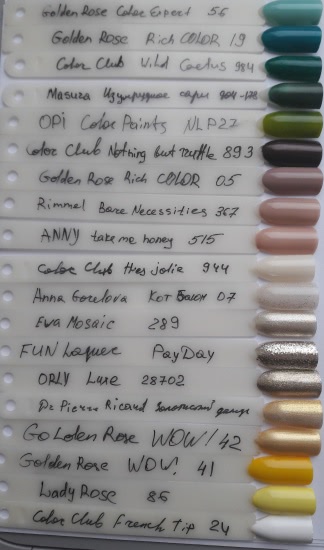 Golden Rose Color Expert 56
Golden Rose Rich COLOR 19
Color Club Wild Cactus 984
Masura Изумрудное сари 904-178
OPI Color Paints NLP27
Color Club Nothing but truffle 893
Golden Rose Rich COLOR 05
Rimmel Bare Necessities 367
ANNY take me honey 515
Color Club thes jolie 944
Anna Gorelova КОТ БАЮН 07
Eva Mosaic 289
FUN Lacquer PayDay
ORLY Luxe 28702
Dr Pierre Ricaud
Golden Rose WOW! 42
Golden Rose WOW! 41
Lady Rose 86
Color Club French Tip 24